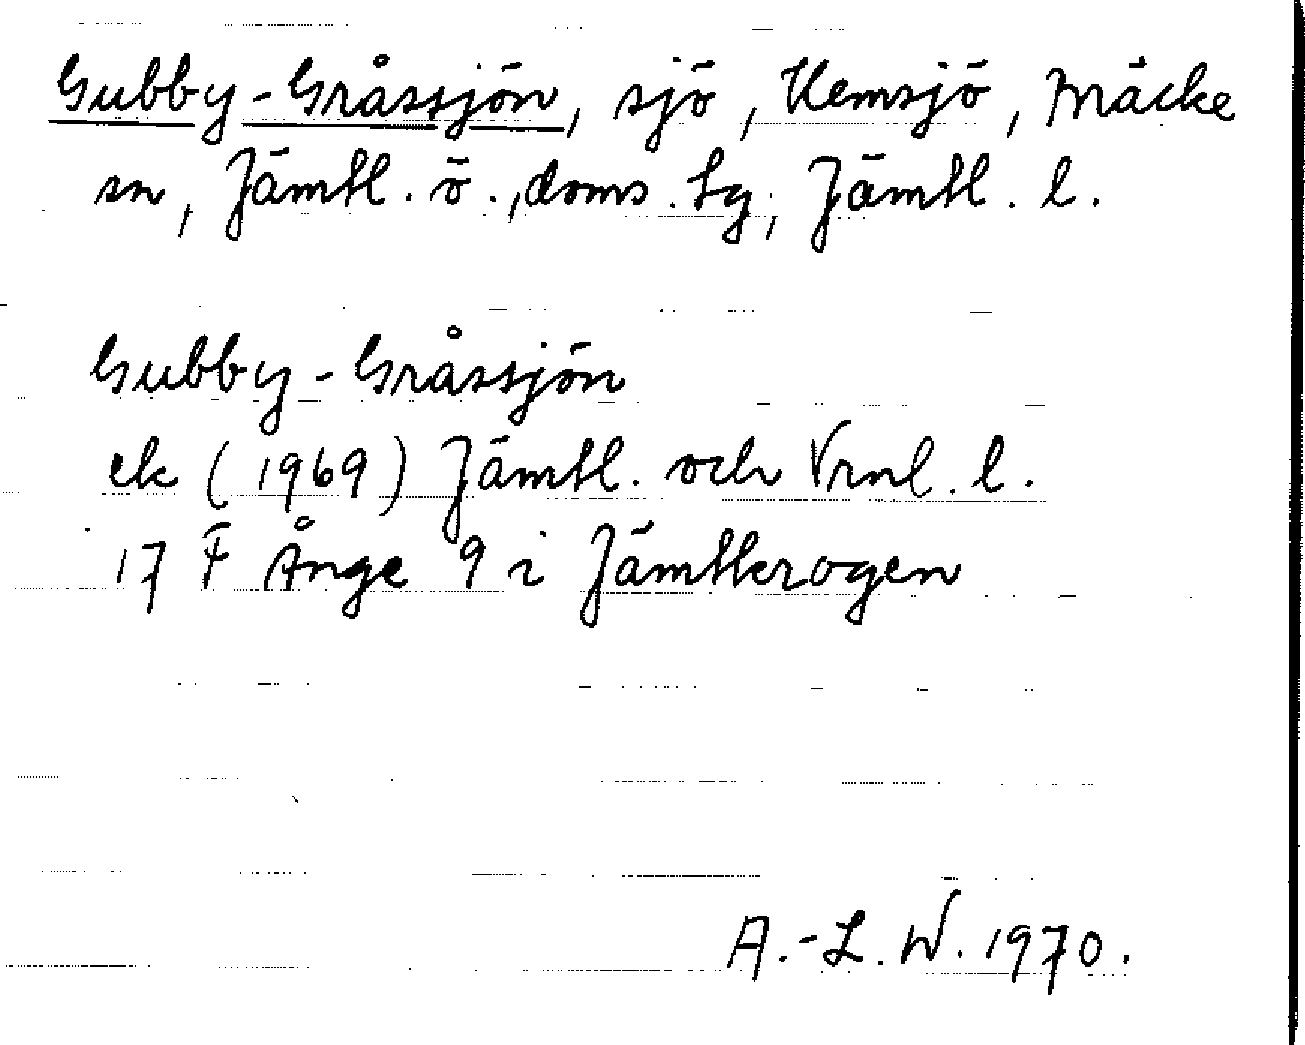 Gubby-Gråssjön, sjö, Hemsjö, Bräcke
sn, Jämtl. ö., doms. lg, Jämtl. l.
Gubby-Gråssjön
ek (1969) Jämtl. och Vrnl. l.
17 F Ånge 9 i Jämtkrogen
A.-L. W. 1970.